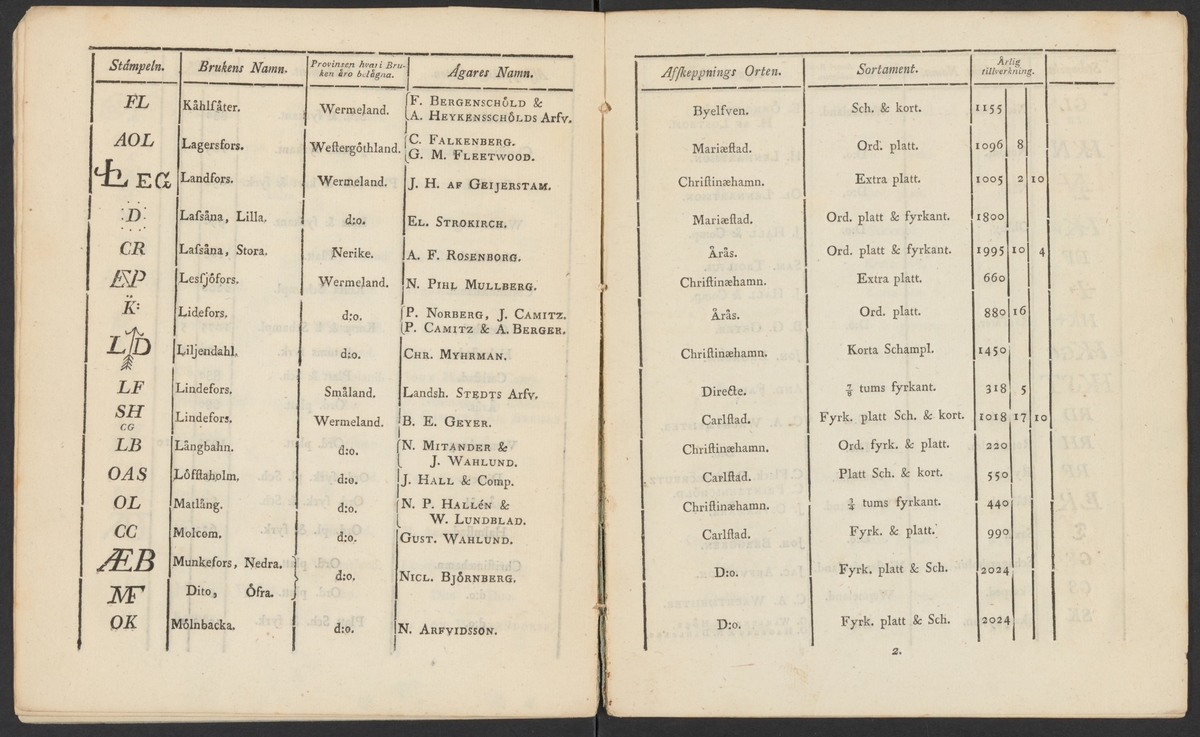 Stämpeln. Brukens Namn. Provinsen hvari Bruken äro belägna. Ägares Namn. Affkeppnings Orten. Sortament. Årlig tillverkning.
FL Kåhlſåter. Wermeland. F. BERGENSCHÖLD & A. HEYKENSSCHÖLDS Arfv. Byelfven. Sch. & kort. 1155
AOL Lagersfors. Weſtergöthland. C. FALKENBERG. G. M. FLEETWOOD. Mariæſtad. Ord. platt. 1096 8
L EG Landfors. Wermeland. J. H. AF GEIJERSTAM. Chriſtinæhamn. Extra platt. 1005 2 10
D Laſsåna, Lilla. d:o. EL. STROKIRCH. Mariæſtad. Ord. platt & fyrkant. 1800
CR Laſsåna, Stora. Nerike. A. F. ROSENBORG. Årås. Ord. platt & fyrkant. 1995 10 4
EP Lesſjöfors. Wermeland. N. PIHL MULLBERG. Chriſtinæhamn. Extra platt. 660
K: Lidefors. d:o. P. NORBERG, J. CAMITZ. P. CAMITZ & A. BERGER. Årås. Ord. platt. 880 16
LD Liljendahl. d:o. CHR. MYHRMAN. Chriſtinæhamn. Korta Schampl. 1450
LF Lindefors. Småland. Landsh. STEDTS Arfv. Directe. ⅞ tums fyrkant. 318 5
SH CG Lindefors. Wermeland. B. E. GEYER. Carlſtad. Fyrk. platt Sch. & kort. 1018 17 10
LB Långbahn. d:o. N. MITANDER & J. WAHLUND. Chriſtinæhamn. Ord. fyrk. & platt. 220
OAS Löfſtaholm. d:o. J. HALL & Comp. Carlſtad. Platt Sch. & kort. 550
OL Matlång. d:o. N. P. HALLéN & W. LUNDBLAD. Chriſtinæhamn. ¾ tums fyrkant. 440
CC Molcom. d:o. GUST. WAHLUND. Carlſtad. Fyrk. & platt. 990
ÆB Munkefors, Nedra. d:o. NICL. BJÖRNBERG. D:o. Fyrk. platt & Sch. 2024
MF Dito, Öfra.
OK Mölnbacka. d:o. N. ARFVIDSSON. D:o. Fyrk. platt & Sch. 2024
2.